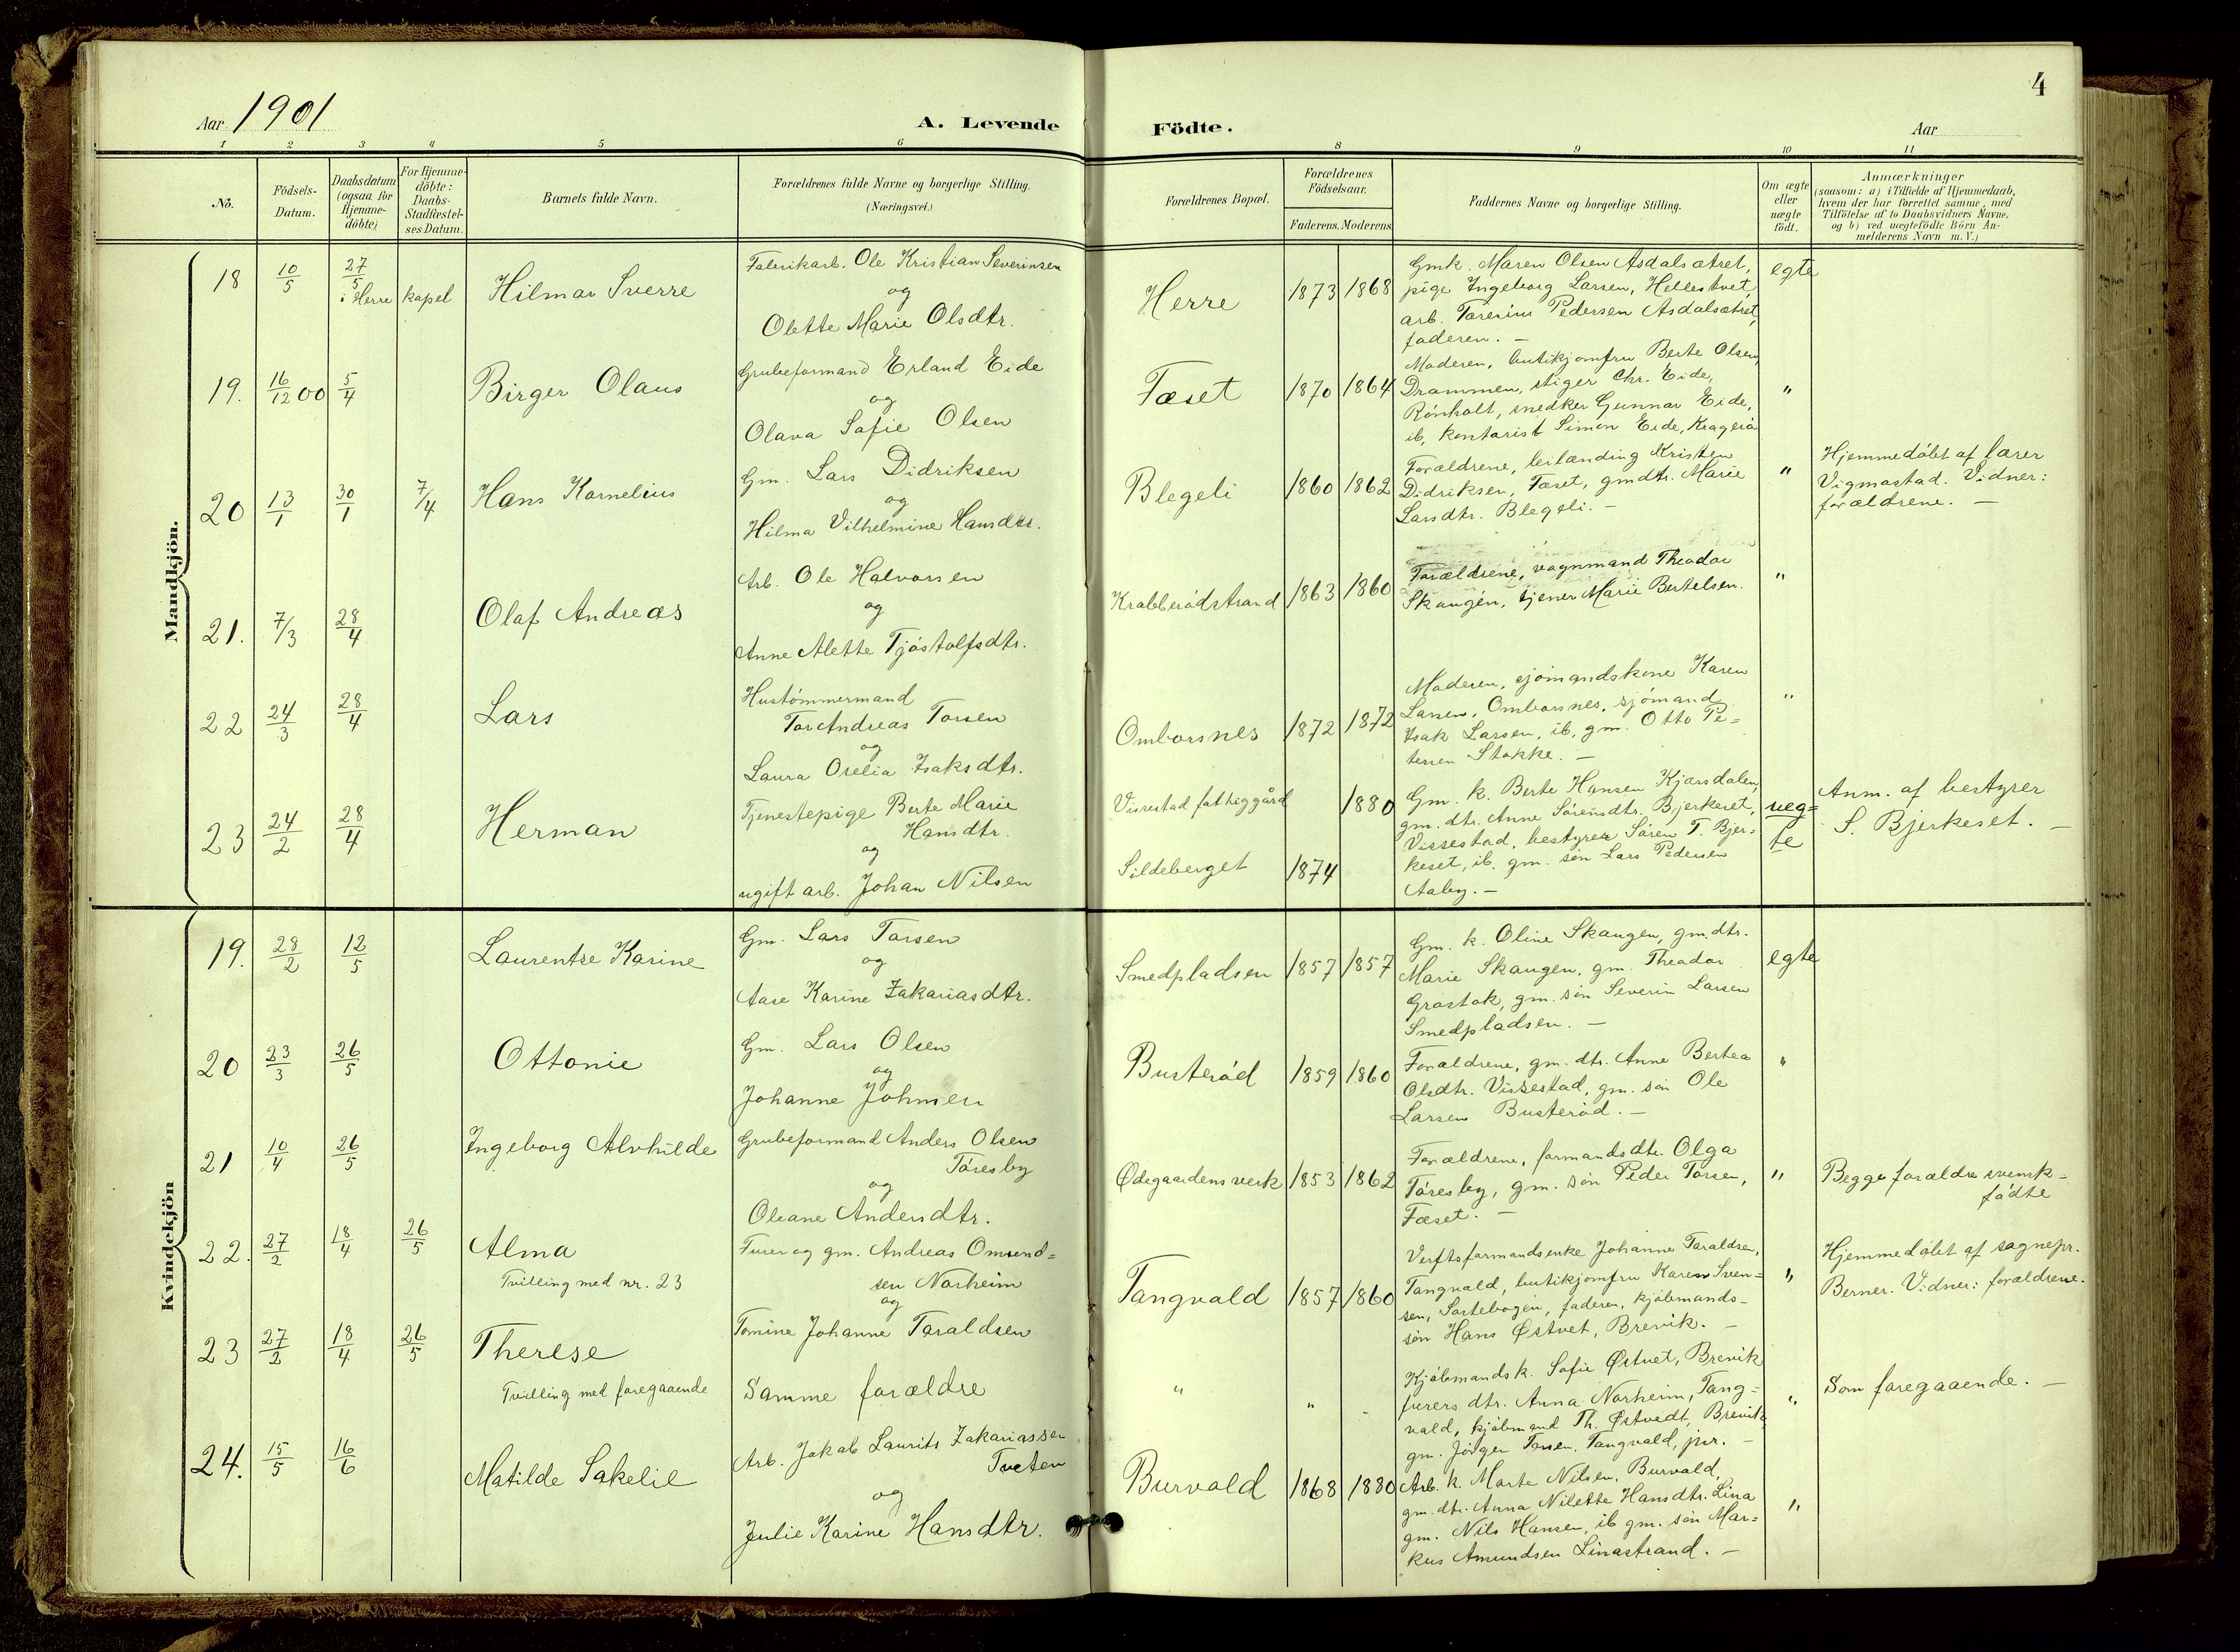 4
Aar 1901
A. Levende Födte.
Aar
1 2 3 4 5 6 8 9 10 11
No.
Födsels-
Datum.
Daabsdatum
(ogsaa for
Hjemme-
döbte)
For Hjemme-
döbte:
Daabs-
Stadfæstel-
ses Datum.
Barnets fulde Navn.
Forældrenes fulde Navne og borgerlige Stilling.
(Næringsvei.)
Forældrenes Bopæl.
Forældrenes
Födselsaar.
Faderens. Moderens
Faddernes Navne og borgerlige Stilling.
Om ægte
eller
uægte
födt.
Anmærkninger
(saasom: a) i Tilfælde af Hjemmedaab,
hvem der har forrettet samme, med
Tilföielse af to Daabsvidners Navne.
og b) ved uægtefödte Börn An-
melderens Navn m. V.)
Mandkjön.
18
10/5
27/5
i Herre kapel
Hilmar Sverre
Fabrikarb. Ole Kristian Severinsen
og
Olette Marie Olsdtr.
Herre
1873
1868
Gmk. Maren Olsen Asdalsætret,
pige Ingeborg Larsen, Hellestvet
arb. Tarerius Pedersen Asdalsætret,
faderen. –
egte
19.
16/12 00
5/4
Birger Olaus
Grubeformand Erland Eide
og
Olava Sofie Olsen
Fæset
1870
1864
Moderen, butikjomfru Berte Olsen,
Drammen, stiger Chr. Eide,
Rönholt, snedker Gunnar Eide,
ib, kontorist Simon Eide, Kragerö
"
20
13/1
30/1
7/4
Hans Kornelius
Gm. Lars Didriksen
og
Hilma Vilhelmine Hansdtr.
Blegeli
1860
1862
Forældrene, leilænding Kristen
Didriksen, Fæset, gmdtr. Marie
Larsdtr. Blegeli. –
"
Hjemmedöbt af lærer
Vigmostad. Vidner:
forældrene. –
21.
7/3
28/4
Olaf Andreas
Arb. Ole Halvorsen
og
Anne Alette Tjöstolfsdtr.
Krabberödstrand
1863
1860
Forældrene, vognmand Theodor
Skaugen, tjener Marie Bertelsen.
"
22
24/3
28/4
Lars
Hustömmermand
Tor Andreas Torsen
og
Laura Orelia Isaksdtr.
Omborsnes
1872
1872
Moderen, sjömandskone Karen
Larsen, Omborsnes, sjömand
Isak Larsen, ib, gm. Otto Pe=
tersen Stokke. –
"
23
24/2
28/4
Herman
Tjenestepige Berte Marie
Hansdtr.
og
ugift arb. Johan Nilsen
Vissestad fattiggård
Sildeberget
1874
1880
Gm. k. Berte Hansen Kjærsdalen,
gm. dtr. Anne Sörensdtr. Bjerkeset,
Vissestad, bestyrer Sören T. Bjer=
keset, ib. gm. sön Lars Pedersen
Aaby. –
ueg=
te
Anm. af bestyrer
S. Bjerkeset. –
Kvindekjön
19.
28/2
12/5
Laurentse Karine
Gm. Lars Torsen
og
Aase Karine Zakariasdtr.
Smedpladsen
1857
1857
Gm. k. Oline Skaugen, gm. dtr.
Marie Skaugen, gm. Theodor
Grastok, gm. sön Severin Larsen
Smedpladsen. –
egte
20
23/3
26/5
Ottonie
Gm. Lars Olsen
og
Johanne Johnsen
Busteröd
1859
1860
Forældrene, gm. dtr. Anne Bertea
Olsdtr. Vissestad, gm. sön Ole
Larsen Busteröd. –
"
21
10/4
26/5
Ingeborg Alvhilde
Grubeformand Anders Olsen
Töresby
og
Oleane Andersdtr.
Ødegaardens verk
1853
1862
Forældrene, formandsdtr. Olga
Töresby, gm. sön Peder Torsen,
Fæset. –
"
Begge forældre svensk-
födte
22.
27/2
18/4
26/5
Alma
Tvilling med nr. 23
Furer og gm. Andreas Omund=
sen Norheim
og
Tomine Johanne Taraldsen
Tangvald
1857
1860
Verftsformandsenke Johanne Taraldsen,
Tangvald, butikjomfru Karen Sven=
sen, Sortebogen, faderen, kjöbmands-
sön Hans Østvet, Brevik. –
"
Hjemmedöbt af sognepr.
Berner. Vidner: forældrene.
23
27/2
18/4
26/5
Therese
Tvilling med foregaaende
Samme forældre
"
"
Kjöbmandsk. Sofie Østvet, Brevik
furers dtr. Anna Norheim, Tang=
vald, kjöbmand Th. Østvedt, Brevik,
gm. Jörgen Torsen, Tangvald, jnr. –
"
Som foregaaende. –
24.
15/5
16/6
Matilde Sakelie
Arb. Jakob Laurits Zakariassen
Tveten
og
Julie Karine Hansdtr.
Burvald
1868
1880
Arb. k. Marte Nilsen, Burvald,
gm. dtr. Anna Nilette Hansdtr. Lina
gm. Nils Hansen, ib gm. sön Mar=
kus Amundsen Linastrand. –
"